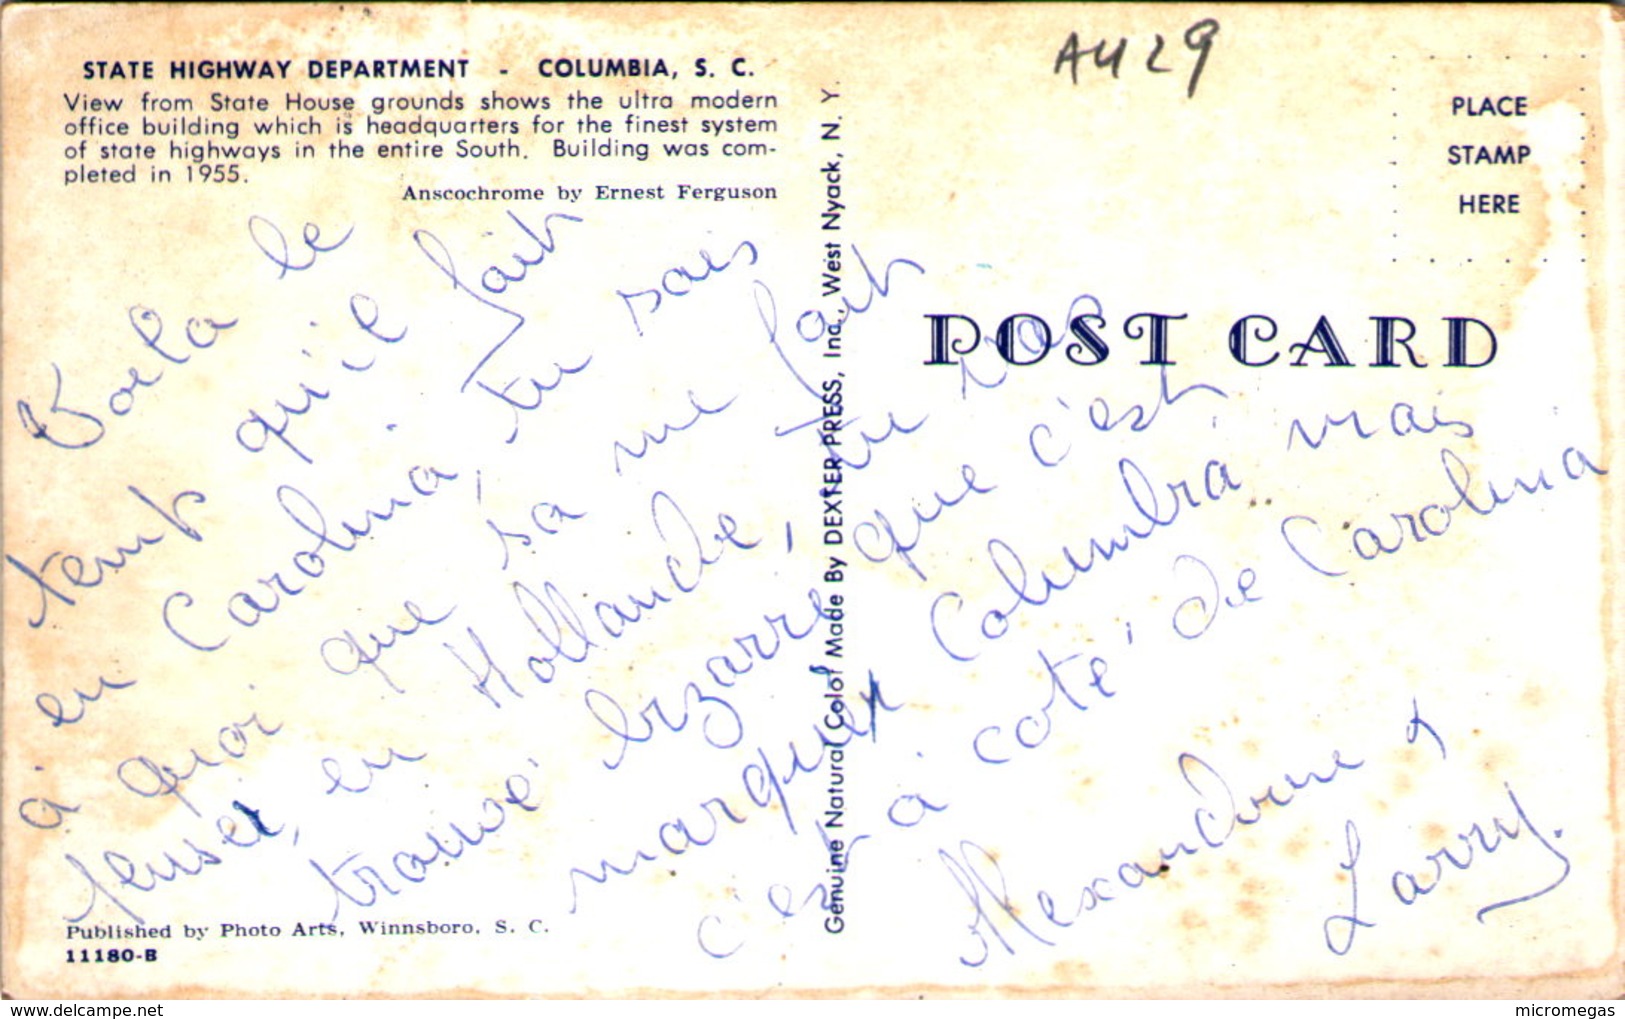 STATE HIGHWAY DEPARTMENT - COLUMBIA, S. C.
View from State House grounds shows the ultra modern
office building which is headquarters for the finest system
of state highways in the entire South. Building was com-
pleted in 1955.
Anscochrome by Ernest Ferguson
AU 29
PLACE
STAMP
HERE
POST CARD
Voila le
temps qu'il fait
en Carolina, tu sais
à quoi que sa me fait
penser, en Hollande, tu vas
trouvé bizarre que c'est
marquer Columbia mais
c'est à coté de Carolina
Alexandrine &
Larry.
Genuine Natural Color Made By DEXTER PRESS, Inc., West Nyack, N. Y.
Published by Photo Arts, Winnsboro, S. C.
11180-B
https://www.delcampe.net
micromegas